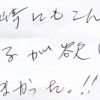 時にもこん
子が欲し
まかった。!!